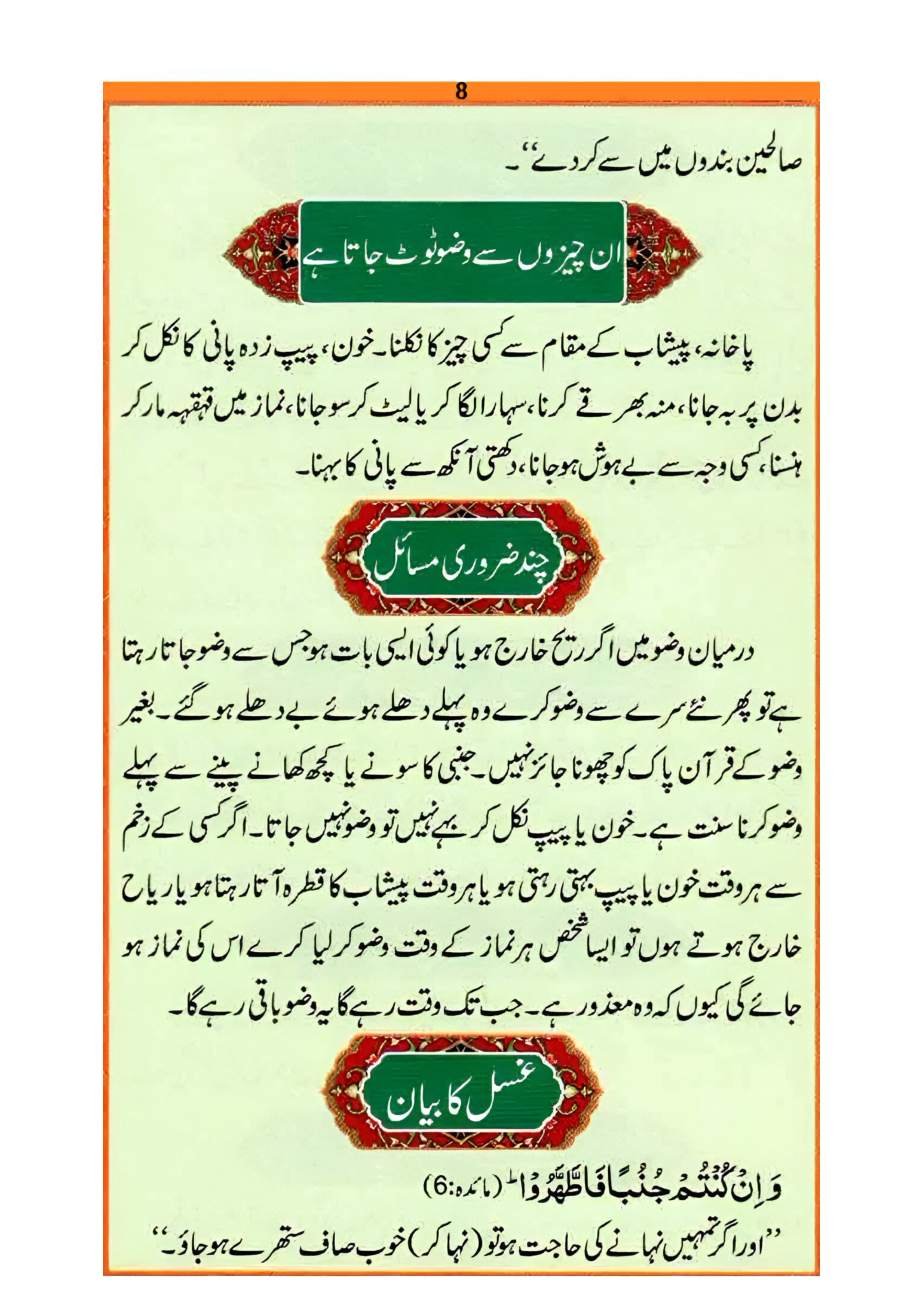 8
صالحین بندوں میں سے کردے‘‘۔
ان چیزوں سے وضوٹوٹ جاتا ہے
پاخانہ، پیشاب کے مقام سے کسی چیز کا نکلنا۔خون، پیپ زدہ پانی کا نکل کر
بدن پر بہ جانا، منہ بھر قے کرنا، سہارا لگا کر یا لیٹ کر سو جانا، نماز میں قہقہہ مار کر
ہنسنا، کسی وجہ سے بے ہوش ہو جانا، دکھتی آنکھ سے پانی کا بہنا۔
چند ضروری مسائل
درمیان وضو میں اگر ریح خارج ہو یا کوئی ایسی بات ہو جس سے وضو جاتا رہتا
ہے تو پھر نئے سرے سے وضو کرے وہ پہلے دھلے ہوئے بے دھلے ہو گئے۔ بغیر
وضو کے قرآن پاک کو چھونا جائز نہیں۔ جنبی کا سونے یا کچھ کھانے پینے سے پہلے
وضو کرنا سنت ہے۔ خون یا پیپ نکل کر بہے نہیں تو وضو نہیں جاتا۔ اگر کسی کے زخم
سے ہر وقت خون یا پیپ بہتی رہتی ہو یا ہر وقت پیشاب کا قطرہ آتا رہتا ہو یا ریاح
خارج ہوتے ہوں تو ایسا شخص ہر نماز کے وقت وضو کر لیا کرے اس کی نماز ہو
جائے گی کیوں کہ وہ معذور ہے۔ جب تک وقت رہے گا یہ وضو باقی رہے گا۔
غسل کا بیان
وَ اِنْ كُنْتُمْ جُنُبًا فَاطَّهَّرُوْا ؕ (مائدہ:6)
’’اور اگر تمہیں نہانے کی حاجت ہو تو (نہا کر) خوب صاف ستھرے ہو جاؤ۔‘‘